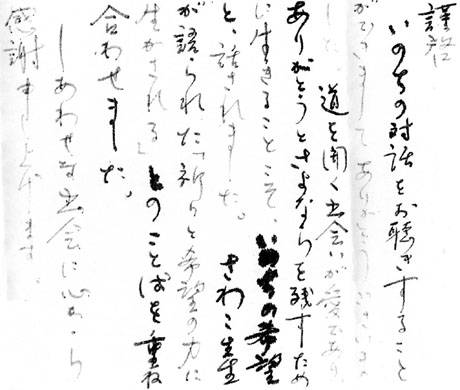 謹啓
いのちの対話をお聴きすること
ができまして ありがとうございま
した。道を開く出会いが愛であり
ありがとうとさよならを残すため
に生きることこそ、いのちの希望
と、話されました。さわこ先生
が語られた「祈りと希望の力に
生かされる」とのことばを重ね
合わせました。
しあわせな出会に心から
感謝申し上げます